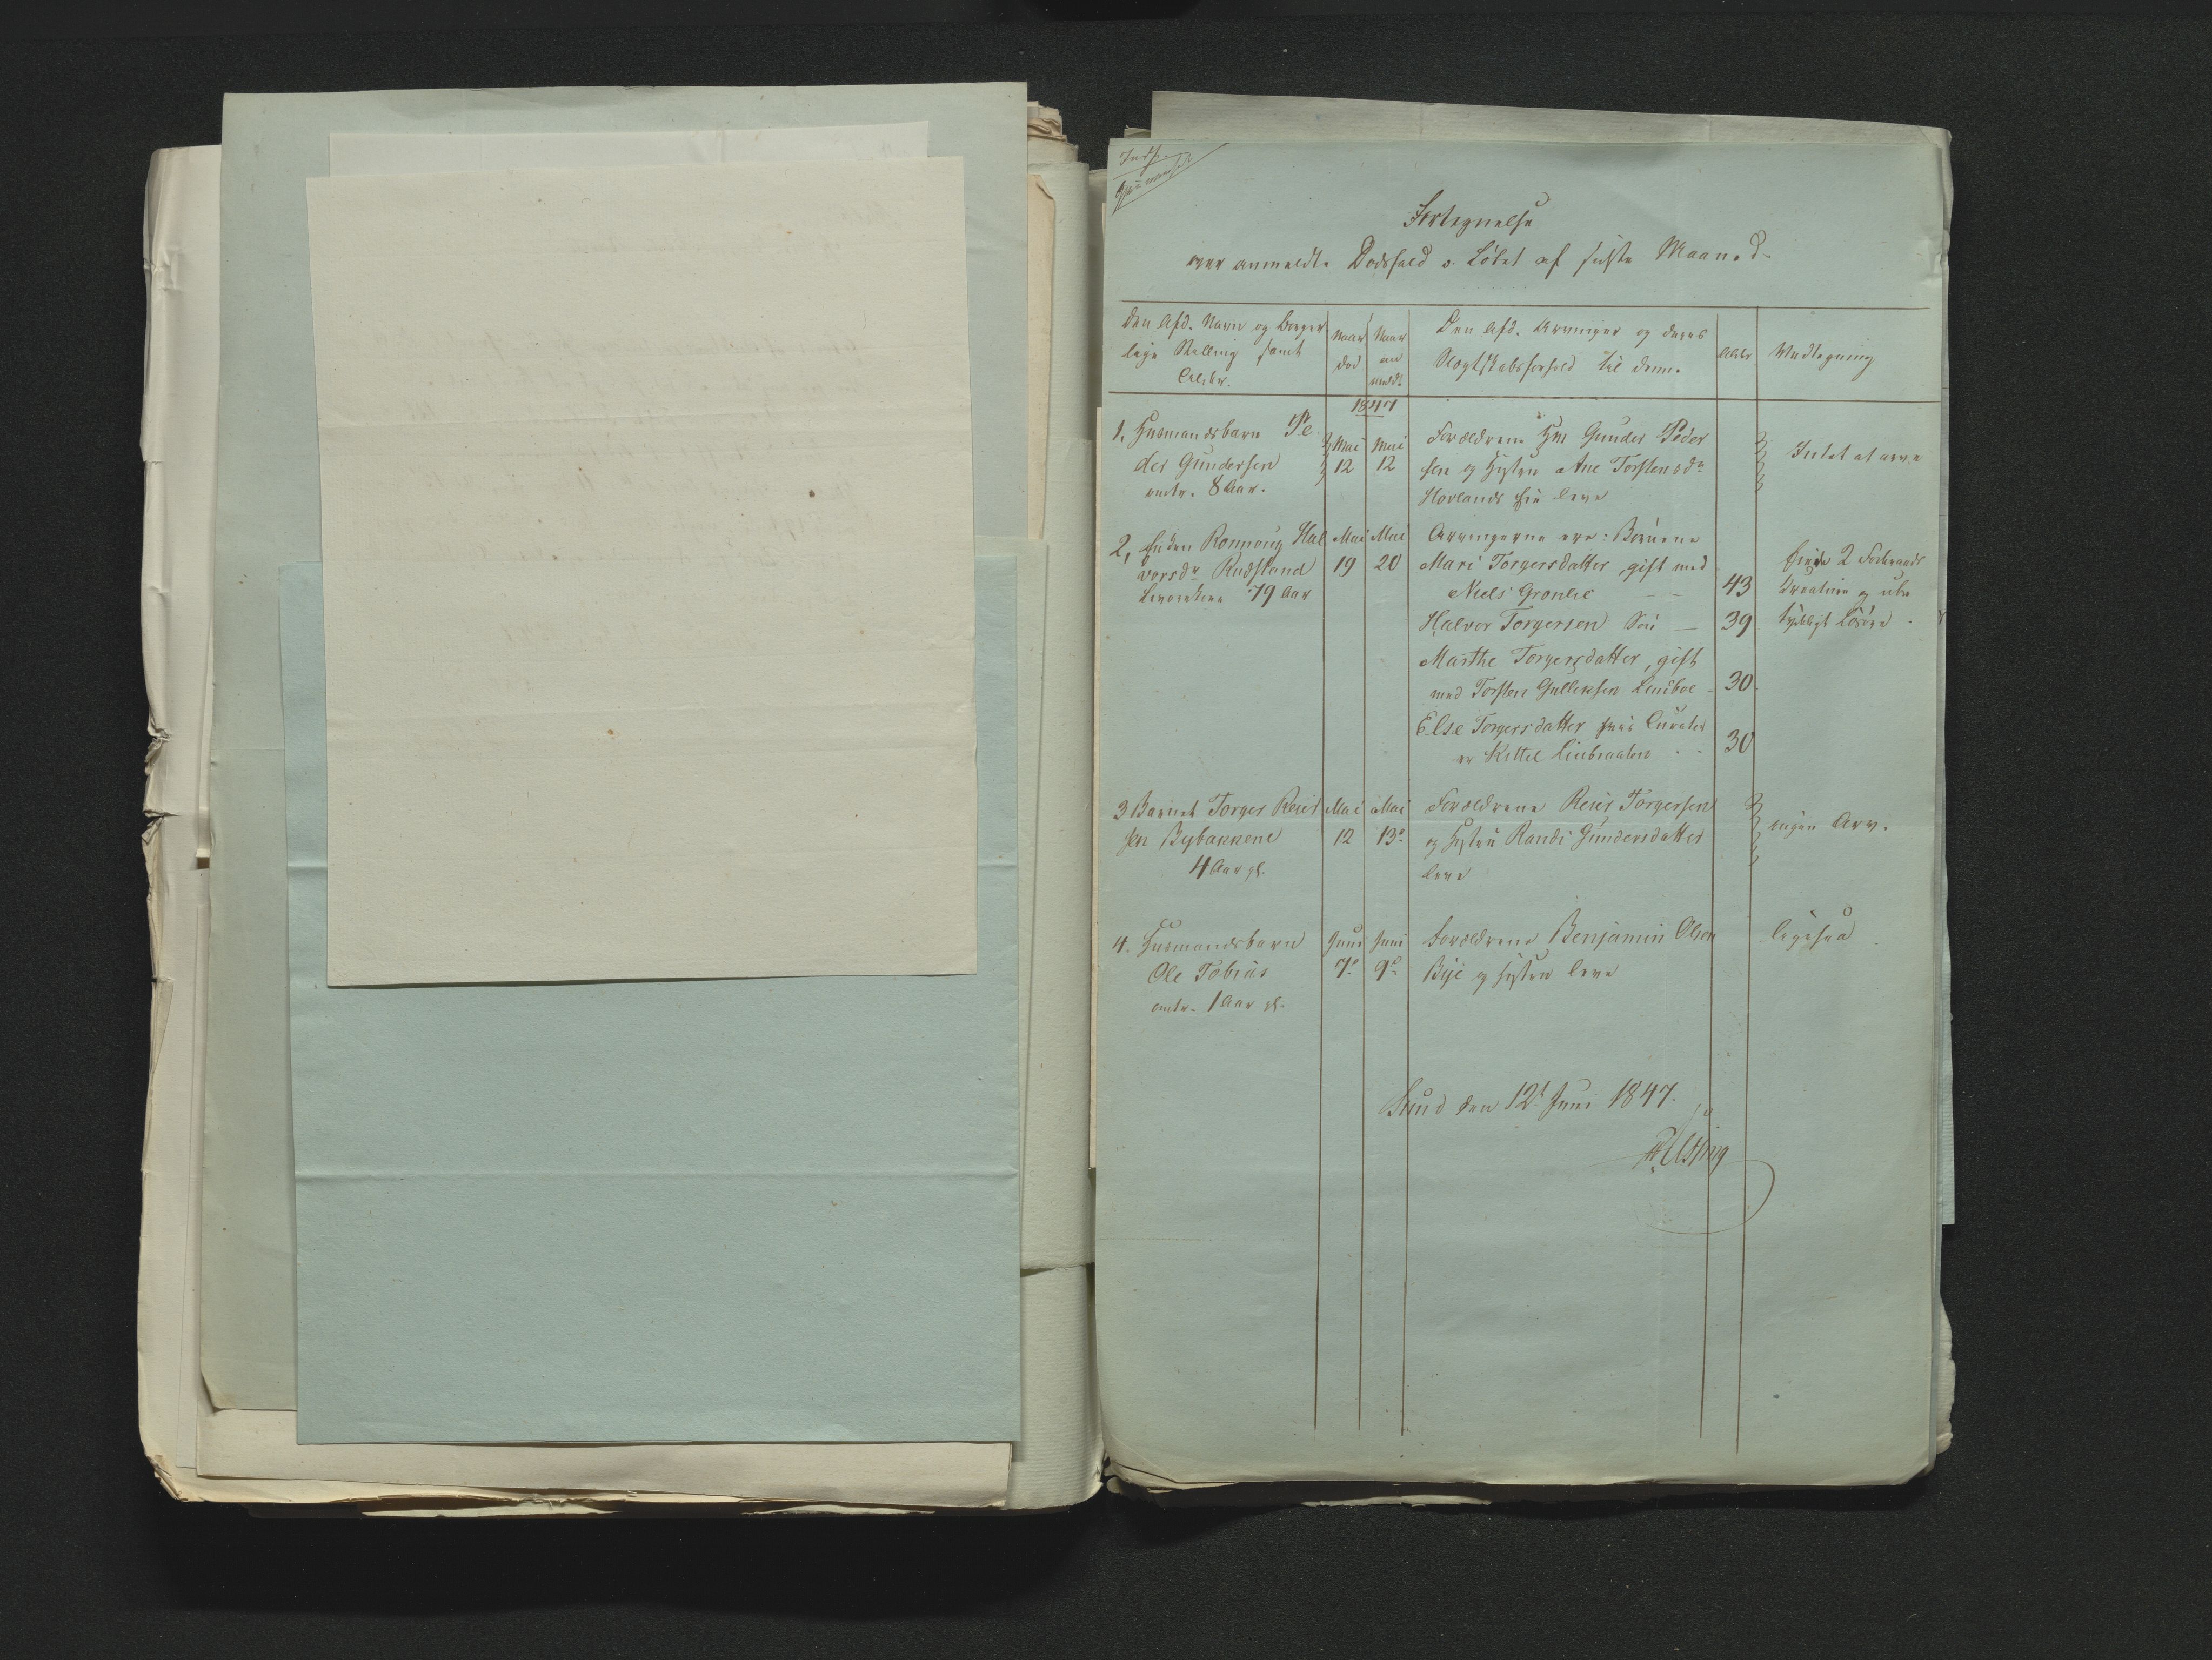 Fortegnelse
over anmeldte Dødsfald i Løbet af sidste Maaned
Den Afd. Navn og borger
lige Stilling samt
Alder.
Naar
død
Naar
an
meldt
Den Afd. Arvinger og deres
Slægtskabsforhold til dem.
Alder
Vedtegning
1847
1. Huusmandsbarn Pe
der Gundersen
omtr. 8 Aar.
Mai
12
Mai
12
Forældrene Hm Gunder Peder
sen og Hustru Ane Torstensdr
Hovlands Eie leve
Intet at arve
2, Enken Rønnoug Hal
vorsdr Rudsland
79 Aar
Mai
19
Mai
20
Arvingerne ere: Børnene
Mari Torgersdatter, gift med
Niels Grønlie — 43
Halvor Torgersen — 39
Marthe Torgersdatter, gift
med Torsten Gulleksen Lindboe 30.
Else Torgersdatter hvis Curator
er Kittel 30
2 Foderaads
Kreature og ube
tydeligt Løsøre.
3 Barnet Torger Reier
sen Bybakkene
4 Aar gl.
Mai
12
Mai
13de
Forældrene Reier Torgersen
og Hustru Randi Gundersdatter
leve
ingen Arv.
4. Huusmandsbarn
Ole Tobias
omtr. 1 Aar gl.
Juni
7de
Juni
9de
Forældrene Benjamin Olsen
Bye og Hustru leve
ligesaa
den 12te Juni 1847.